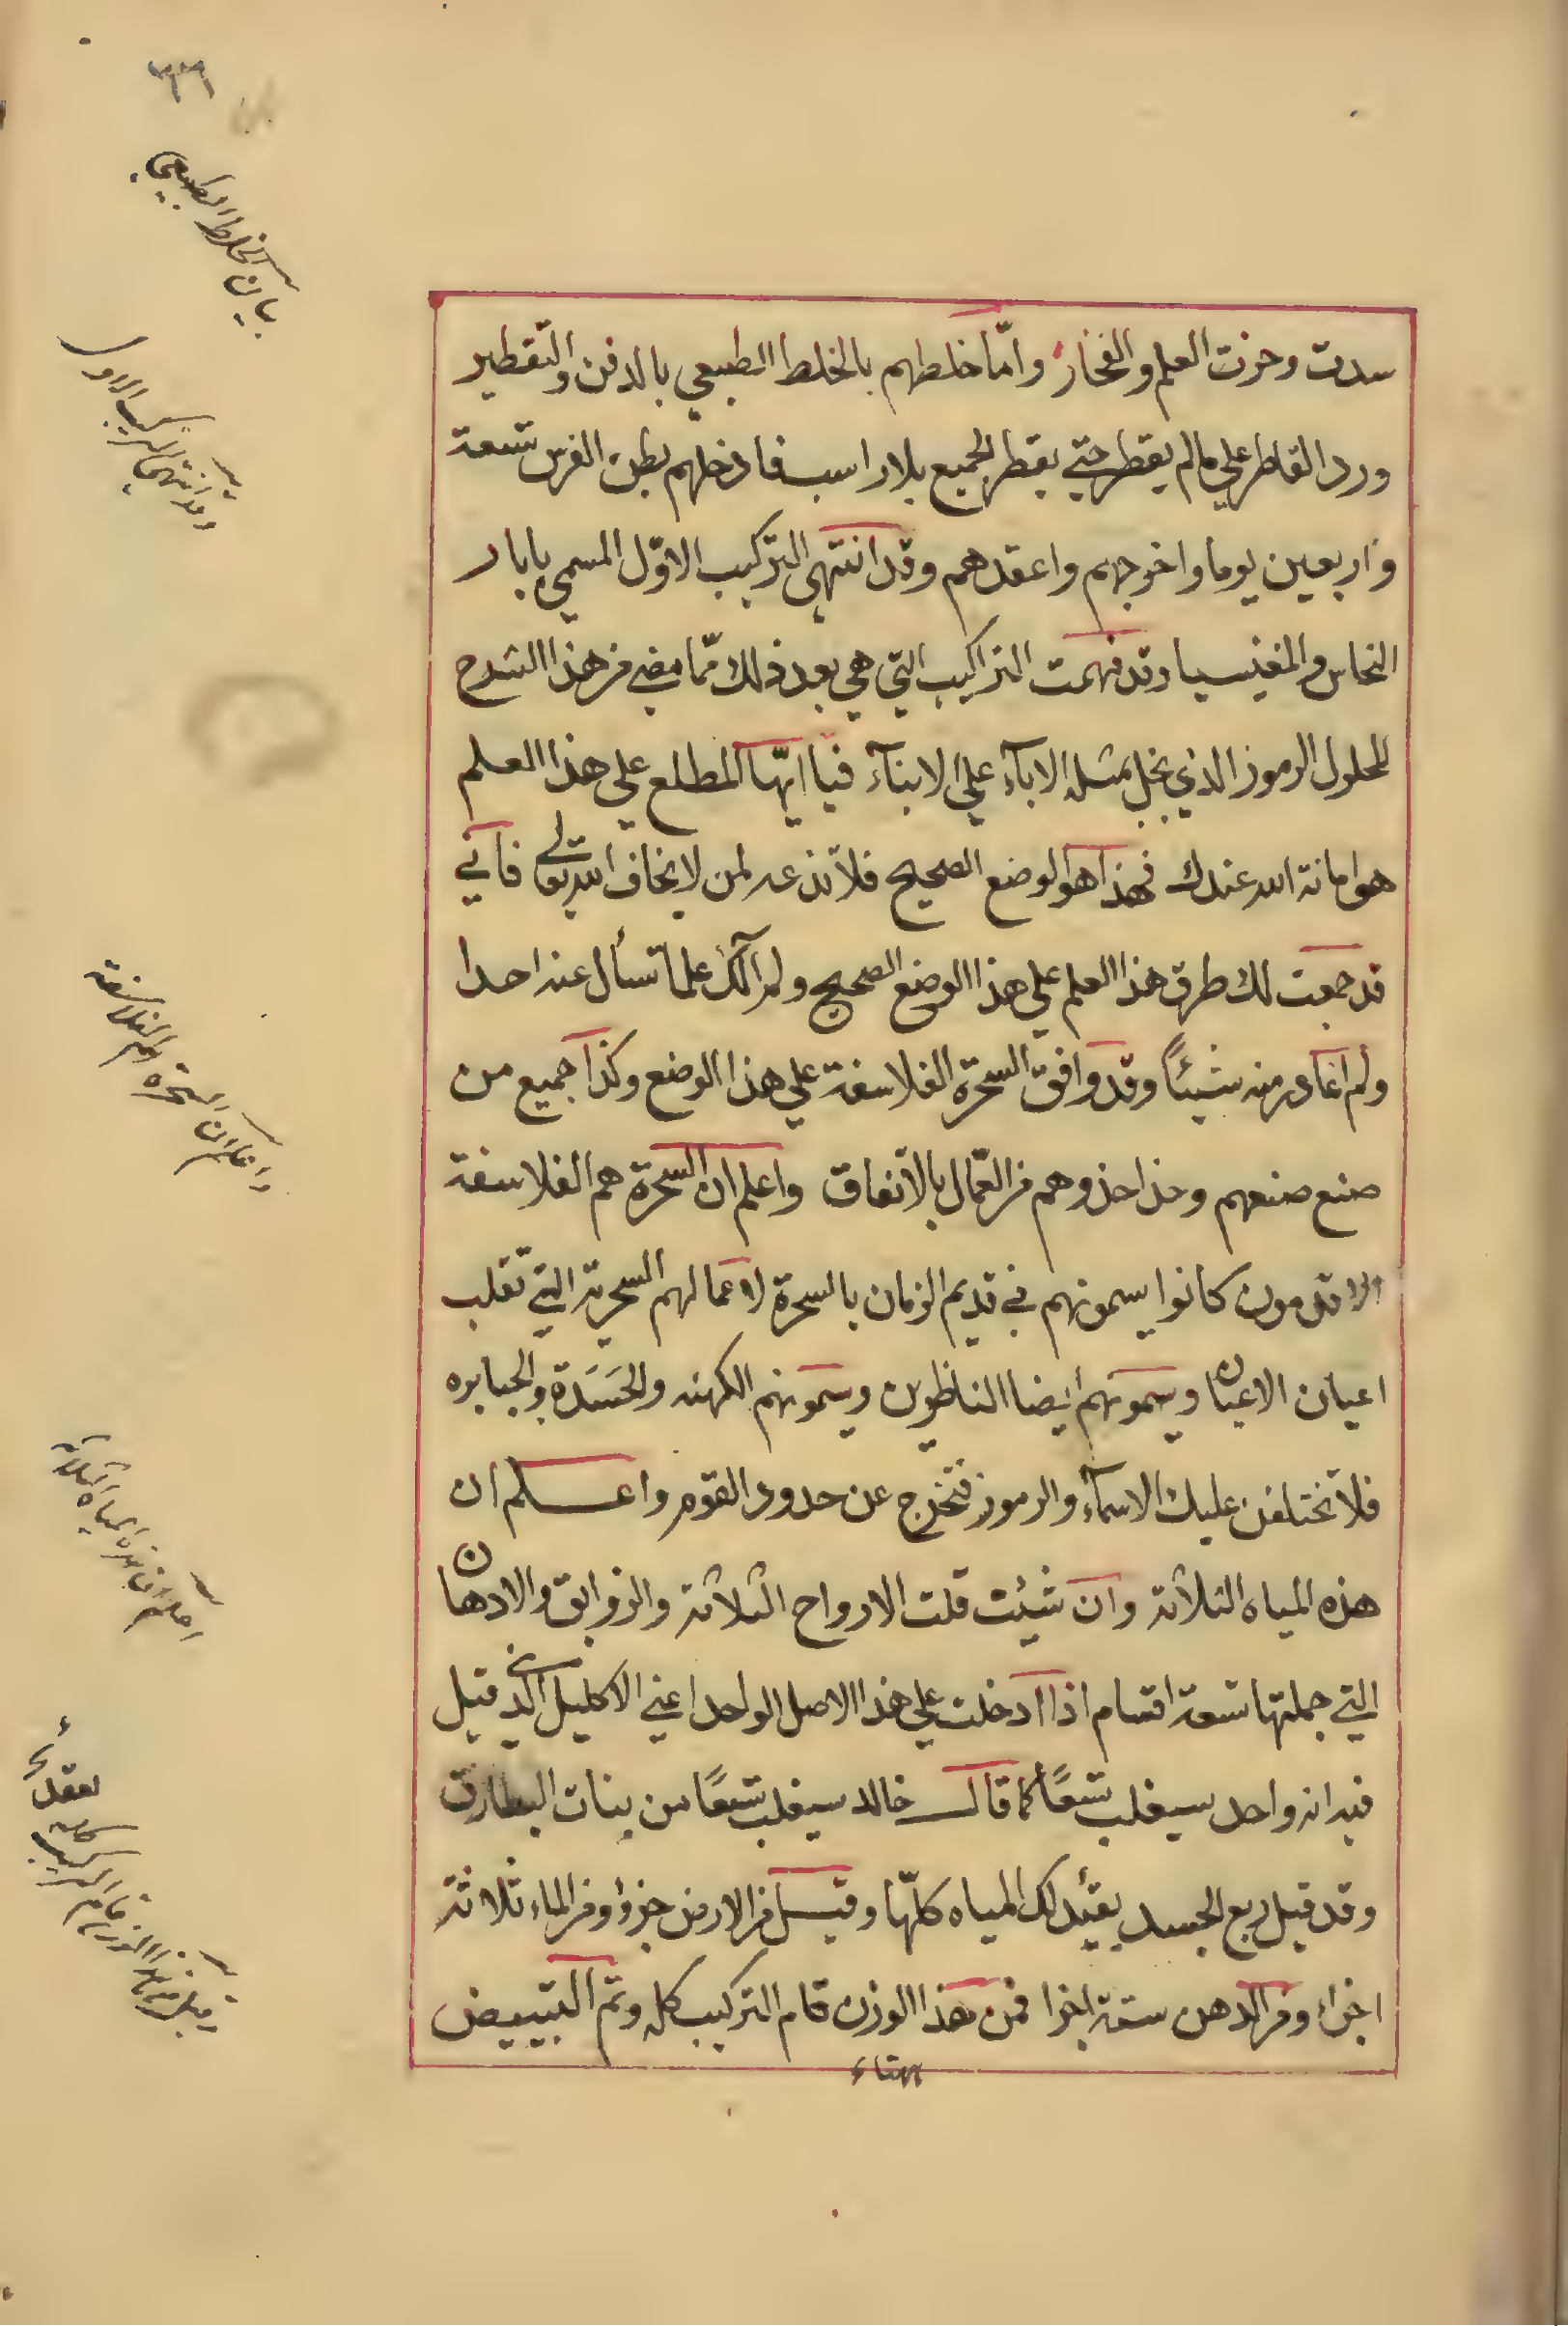 ٣٣٦
بيان الخلط الطبيعي
سدت وحزت العلم والفخار وامّا خلطهم بالخلط الطبيعي بالدفن والتّقطير
ورد القاطر علي مالم يقطر حتي يقطر الجميع بلا راسب فادخلهم بطن الفرس تسعة
واربعين يوما واخرجهم واعقدهم وقد انتهي التركيب الاوّل المسمي بابار
وقد انتهي التركيب الاول
النحاس والمغنيسيا وقد فهمت التراكيب التي هي بعد ذلك ممّا مضي من هذا الشرح
المحلول الرموز الذي بخل بمثله الابآء علي الابنآء فيا ايّها المطلع علي هذا العلم
هو امانة الله عندك فهذا هو الوضع الصحيح فلا تذعه لمن لا يخاف الله تعالي فاني
قد جمعت لك طرق هذا العلم علي هذا الوضع الصحيح ولم اترك علما تسأل عنه احدا
ولم اغادر منه شيئاً وقد وافق السحرة الفلاسفة علي هذا الوضع وكذا جميع من
صنع صنعهم وحذا حذوهم من العمّال بالاتفاق واعلم ان السحرة هم الفلاسفة
واعلم ان السحره هم الفلاسفة
الاقدمون كانوا يسمونهم في قديم الزمان بالسحرة لاعمالهم السحرية التي تقلب
اعيان الاعيان ويسمونهم أيضا الناظرين ويسمونهم الكهنه والحَسَدَة والجبابره
فلا تختلفن عليك الاسمآء والرموز فتخرج عن حدود القوم واعلم ان
هذه المياه الثلاثة وان شيئت قلت الارواح الثلاثة والزوابق والادهان
اعلم ان هذه المياه الثلاثة
التي جملتها تسعة اقسام اذا ادخلت علي هذا الاصل الواحد اعني الاكليل الذي قيل
فيه انه واحد سيغلب تسعًا كما قال خالد سيغلب تسعًا من بنات البطارق
وقد قيل ربع الجسد يقيّد لك المياه كلّها وقيل من الارض جزؤ ومن الماء ثلاثة
اجزاء ومن الدهن ستة اجزا فمن هذا الوزن قام التركيب كله وتم التبييض